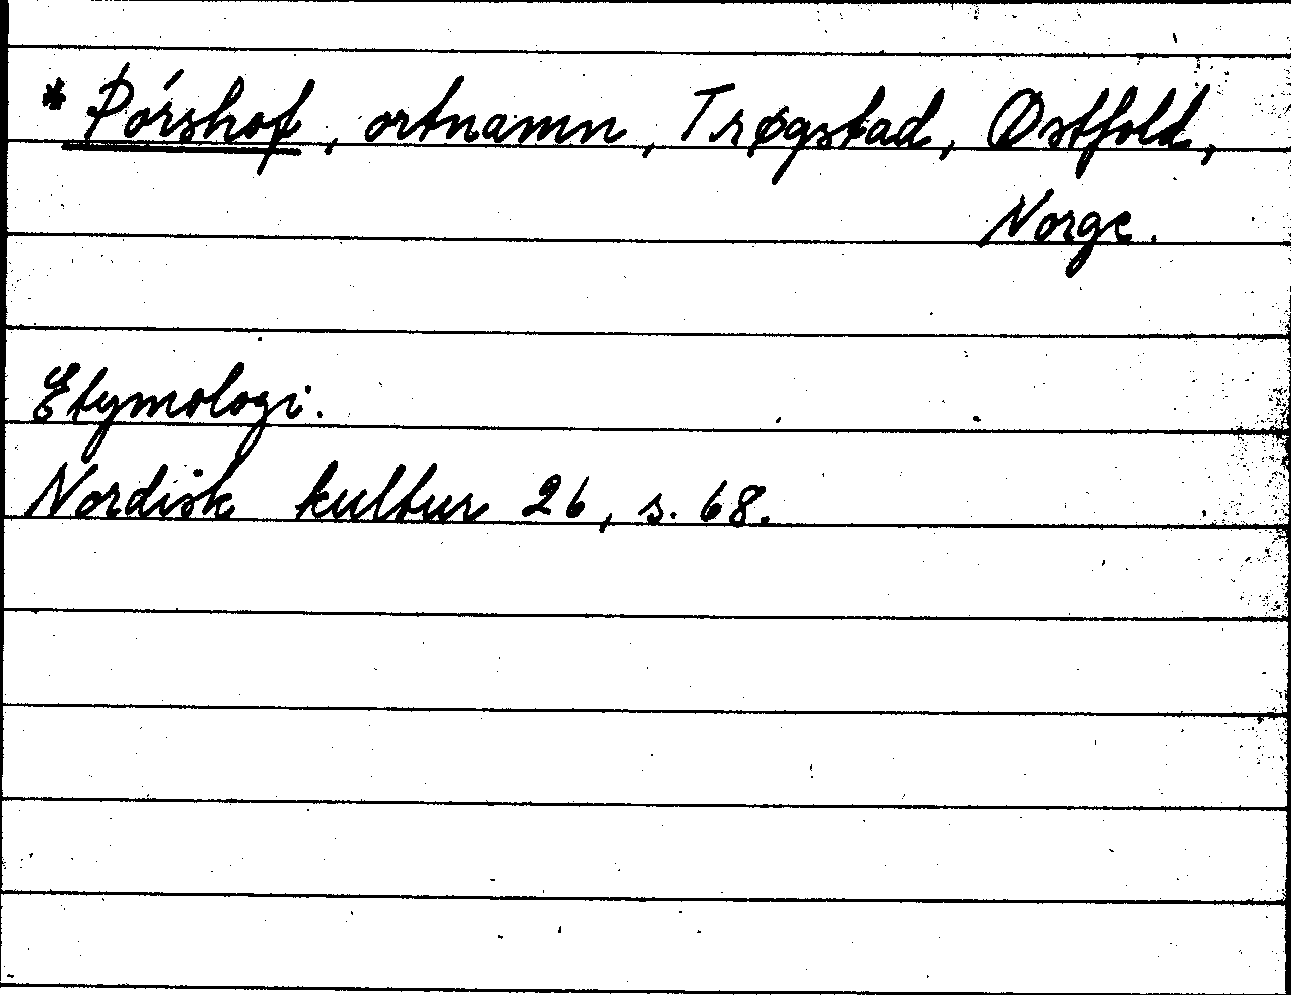 * Þórshof, ortnamn, Trøgstad, Østfold,
Norge.
Etymologi.
Nordisk kultur 26, s. 68.